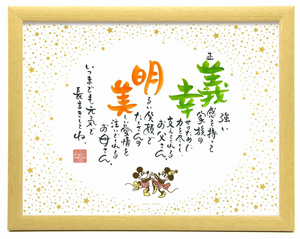 正義
強い
感を持って
家族の
幸
せのために
力を尽くし
支えてくれる
お父さん。
明
るい笑顔で
たくさんの
美
しい愛情を
注いでくれる
お母さん。
いつまでも元気で
長生きしてね。